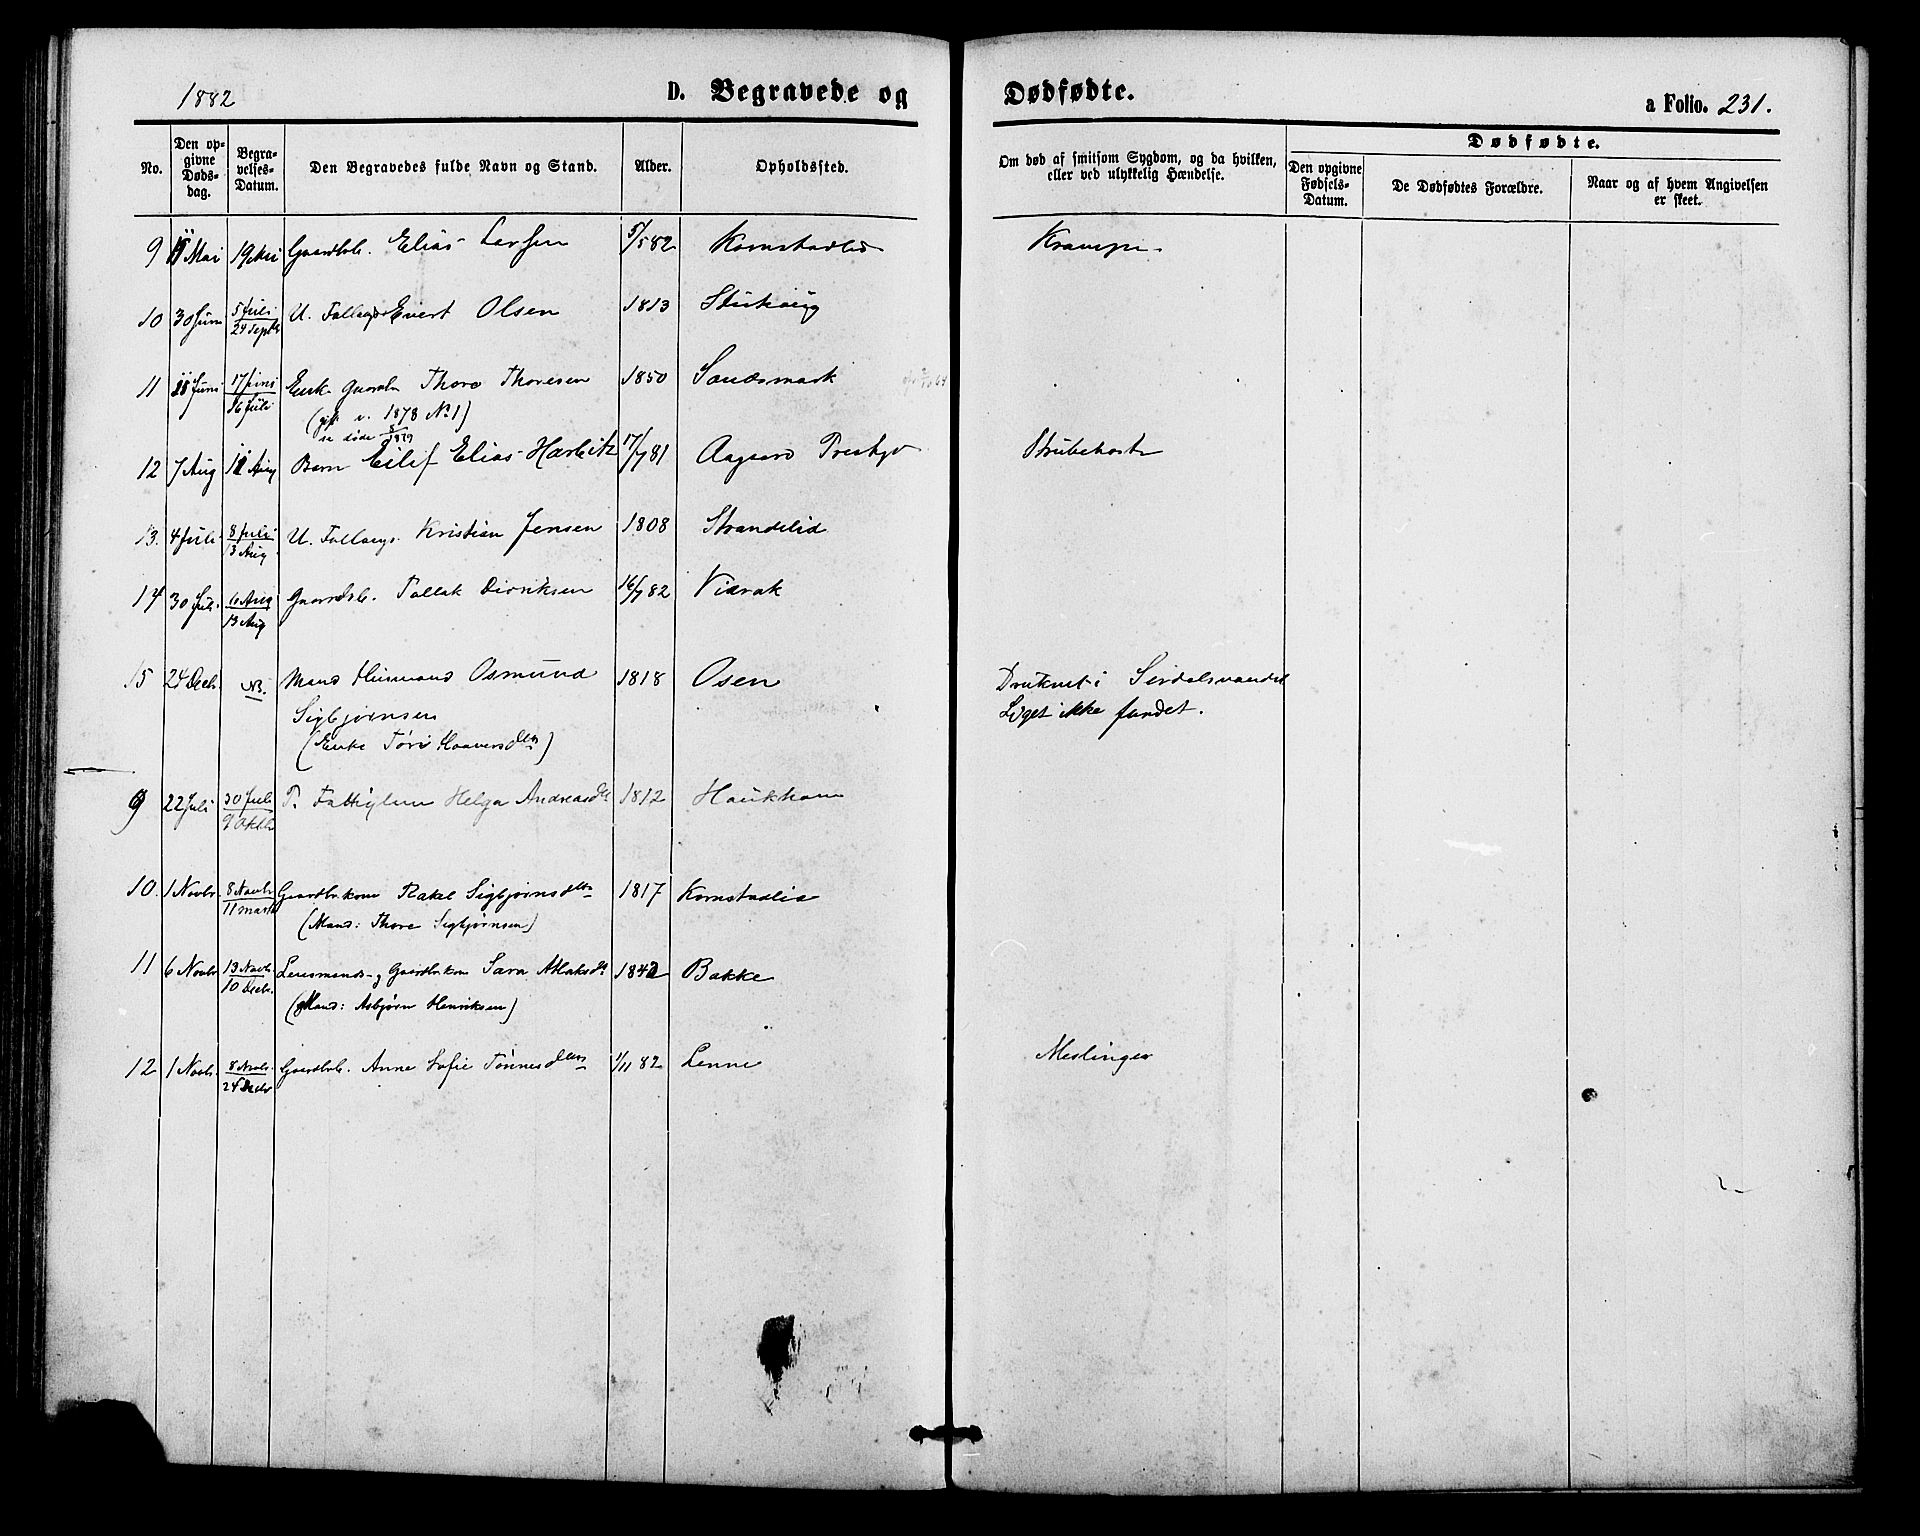 1882
D. Begravede og Dødfødte.
a Folio. 231.
No.
Den opgivne Dødsdag.
Begravelses-Datum.
Den Begravedes fulde Navn og Stand.
Alder.
Opholdssted.
Om død af smitsom Sygdom, og da hvilken, eller ved ulykkelig Hændelse.
Dødfødte.
Den opgivne Fødsels-Datum.
De Dødfødtes Forældre.
Naar og af hvem Angivelsen er skeet.
9 11 Mai 19 Mai Gaardbb. Elias Larsen 5/5 82 Kornstadlid Krampe
10 30 Juni 5 Juli 24 Septb U. Follaugs Evert Olsen 1813
11 11 Juni 17 Juni 16 Juli Enk. Gaardbr Thore Thoresen 1850 Sandsmark
(gift v. 1878 No 1)
12 7 Aug 11 Aug Barn Eilif Elias Harbitz 17/7 81 Aagaard Prestegd Strubehoste
13. 4 Juli 8 Juli 13 Aug U. Follaugs. Kristian Jensen 1808 Strandelid
14 30 Jul. 6 Aug 13 Aug Gaardbb. Tallak Diriksen 16/7 82 Vidrak
15 24 Decb. NB. Mand Husmand Osmund 1818 Osen Druknet i Sirdalsvandet
Sigbjørnsen Liget ikke fundet.
(Enke Tøri Haavarsdtr)
9 22 Juli 30 Juli 9 Oktb Fattiglem Helga Andreasdtr 1812 Haukhom
10. 1 Novbr. 8 Novbr 11 Marts Gaardbrkone Rakel Sigbjørnsdtr 1817 Kornstadlid
(Mand: Thore Sigbjørnsen)
11 6 Novbr 13 Novbr. 10 Decbr. Lensmands- og Gaardbrkon Sara Atlaksdtr 1842 Bakke
(Mand: Asbjørn Henriksen)
12 1 Novbr. 8 Novbr. 24 Decbr Gaardbb. Anne Sofie Tønnesdatter 1/11 82 Lenne Meslinger